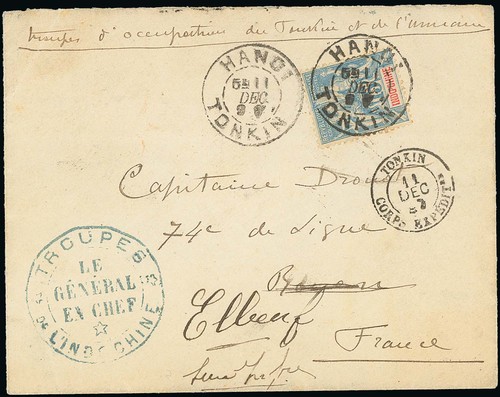 troupes d'occupation du Tonkin et de l'Annam
HANOI
5E 11
DEC
97
TONKIN
HANOI
5E 11
DEC
97
TONKIN
INDO-CHINE
TONKIN
11
DEC
97
CORPS EXPEDIT
Capitaine
74e de Ligne
Rouen
Elbeuf
France
TROUPES
LE
GÉNÉRAL
EN CHEF
DE L'INDO-CHINE